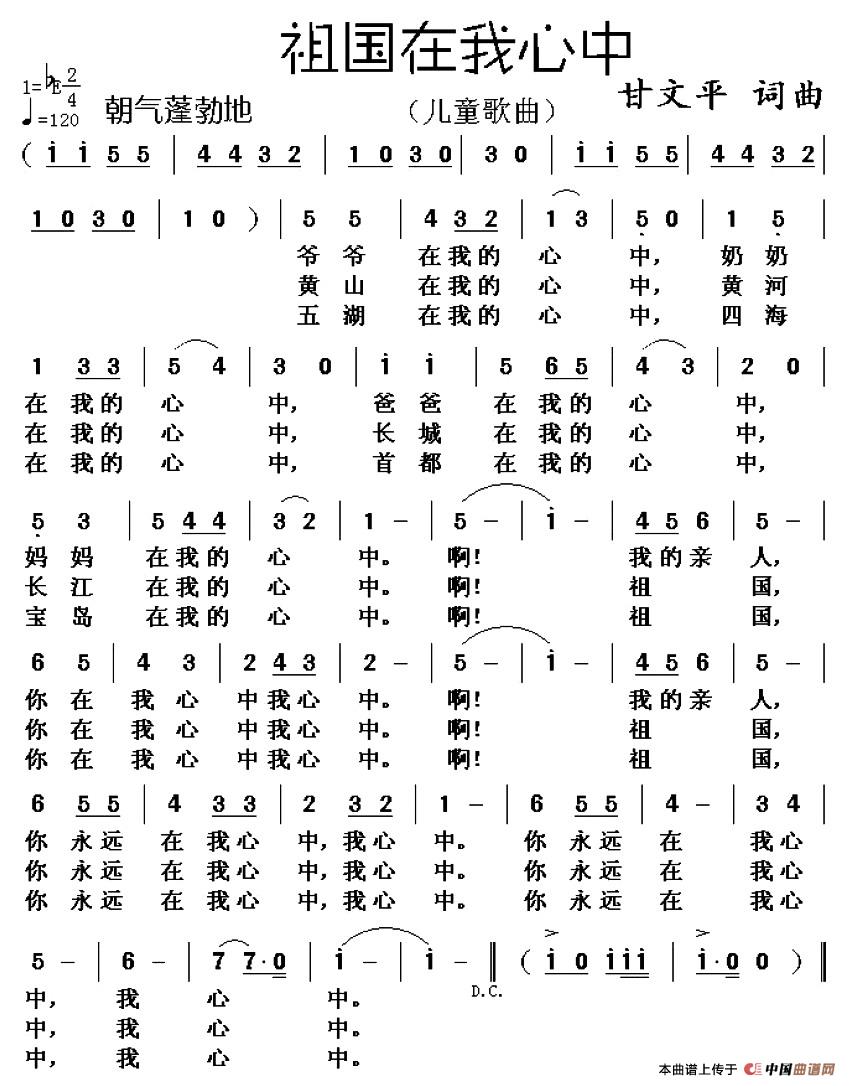 祖国在我心中
1=♭E 2/4
♩=120 朝气蓬勃地 （儿童歌曲） 甘文平 词曲
( i i 5 5 | 4 4 3 2 | 1 0 3 0 | 3 0 | i i 5 5 | 4 4 3 2 |
1 0 3 0 | 1 0 ) | 5 5 | 4 3 2 | 1 3 | 5 0 | 1 5 |
爷爷 在我的 心 中， 奶奶
黄山 在我的 心 中， 黄河
五湖 在我的 心 中， 四海
1 3 3 | 5 4 | 3 0 | i i | 5 6 5 | 4 3 | 2 0 |
在 我的 心 中， 爸爸 在我的 心 中，
在 我的 心 中， 长城 在我的 心 中，
在 我的 心 中， 首都 在我的 心 中，
5 3 | 5 4 4 | 3 2 | 1 - | 5 - | i - | 4 5 6 | 5 - |
妈妈 在我的 心 中。 啊！ 我的亲 人，
长江 在我的 心 中。 啊！ 祖 国，
宝岛 在我的 心 中。 啊！ 祖 国，
6 5 | 4 3 | 2 4 3 | 2 - | 5 - | i - | 4 5 6 | 5 - |
你在 我心 中我心 中。 啊！ 我的亲 人，
你在 我心 中我心 中。 啊！ 祖 国，
你在 我心 中我心 中。 啊！ 祖 国，
6 5 5 | 4 3 3 | 2 3 2 | 1 - | 6 5 5 | 4 - | 3 4 |
你 永远 在 我心 中，我心 中。 你 永远 在 我心
你 永远 在 我心 中，我心 中。 你 永远 在 我心
你 永远 在 我心 中，我心 中。 你 永远 在 我心
5 - | 6 - | 7 7·0 | i - | i - ‖ ( i 0 i i i | i·0 0 ) ‖
D.C.
中， 我 心 中。
中， 我 心 中。
中， 我 心 中。
本曲谱上传于 中国曲谱网